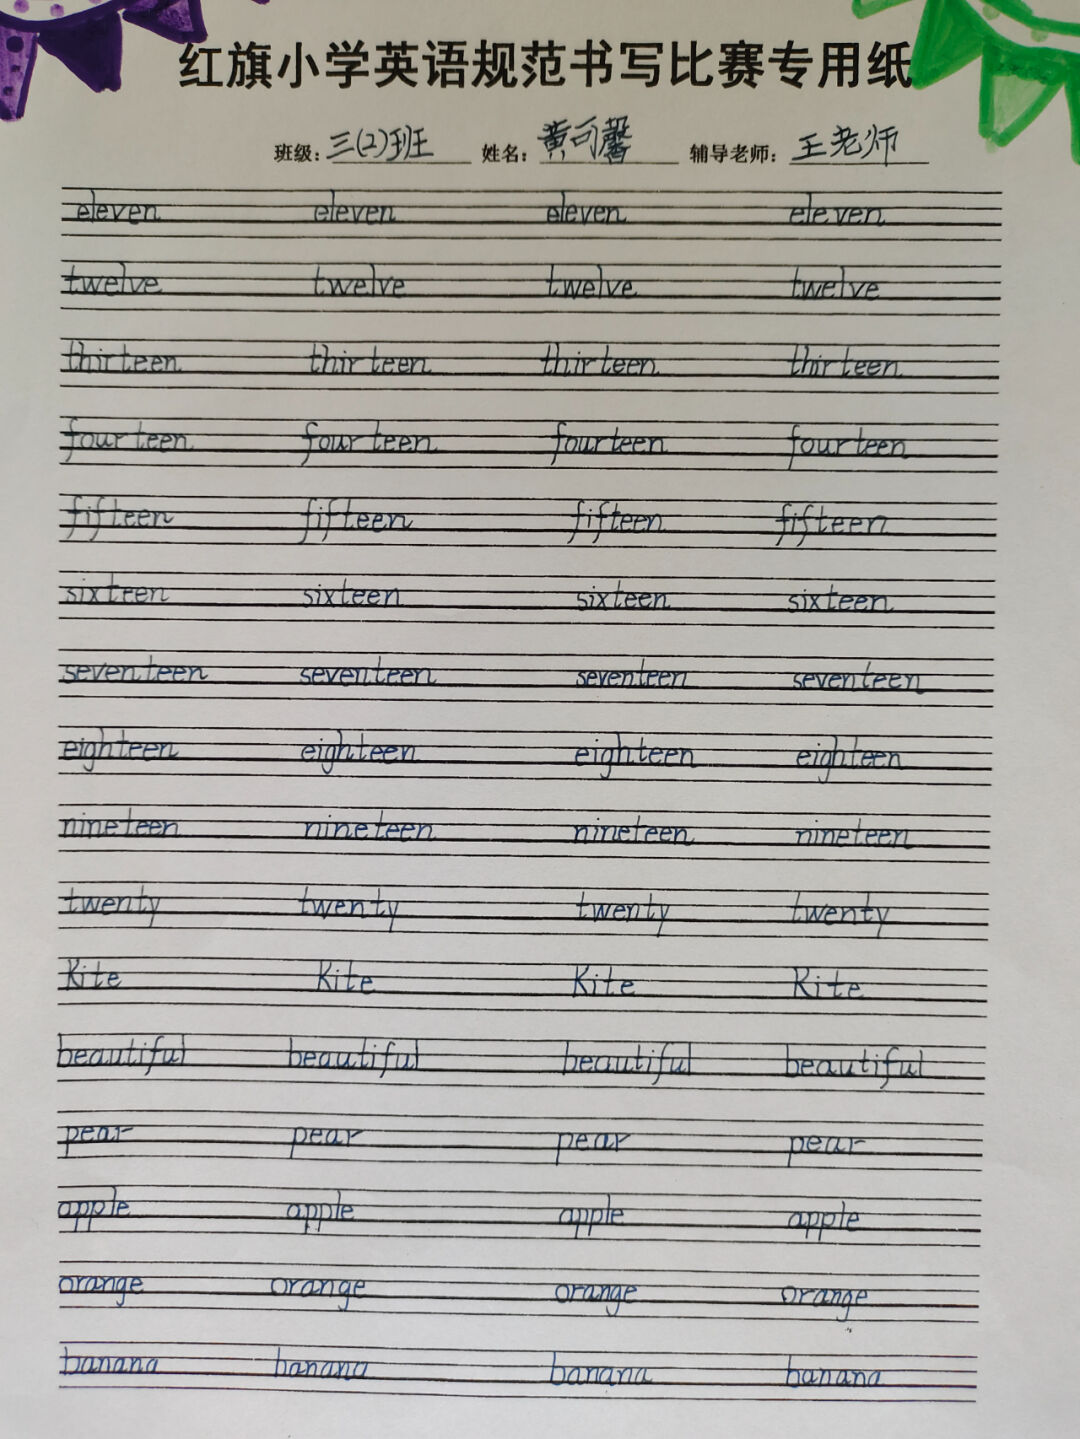 红旗小学英语规范书写比赛专用纸
班级：三(2)班 姓名：黄可馨 辅导老师：王老师
eleven eleven eleven eleven
twelve twelve twelve twelve
thirteen thirteen thirteen thirteen
fourteen fourteen fourteen fourteen
fifteen fifteen fifteen fifteen
sixteen sixteen sixteen sixteen
seventeen seventeen seventeen seventeen
eighteen eighteen eighteen eighteen
nineteen nineteen nineteen nineteen
twenty twenty twenty twenty
Kite Kite Kite Kite
beautiful beautiful beautiful beautiful
pear pear pear pear
apple apple apple apple
orange orange orange orange
banana banana banana banana